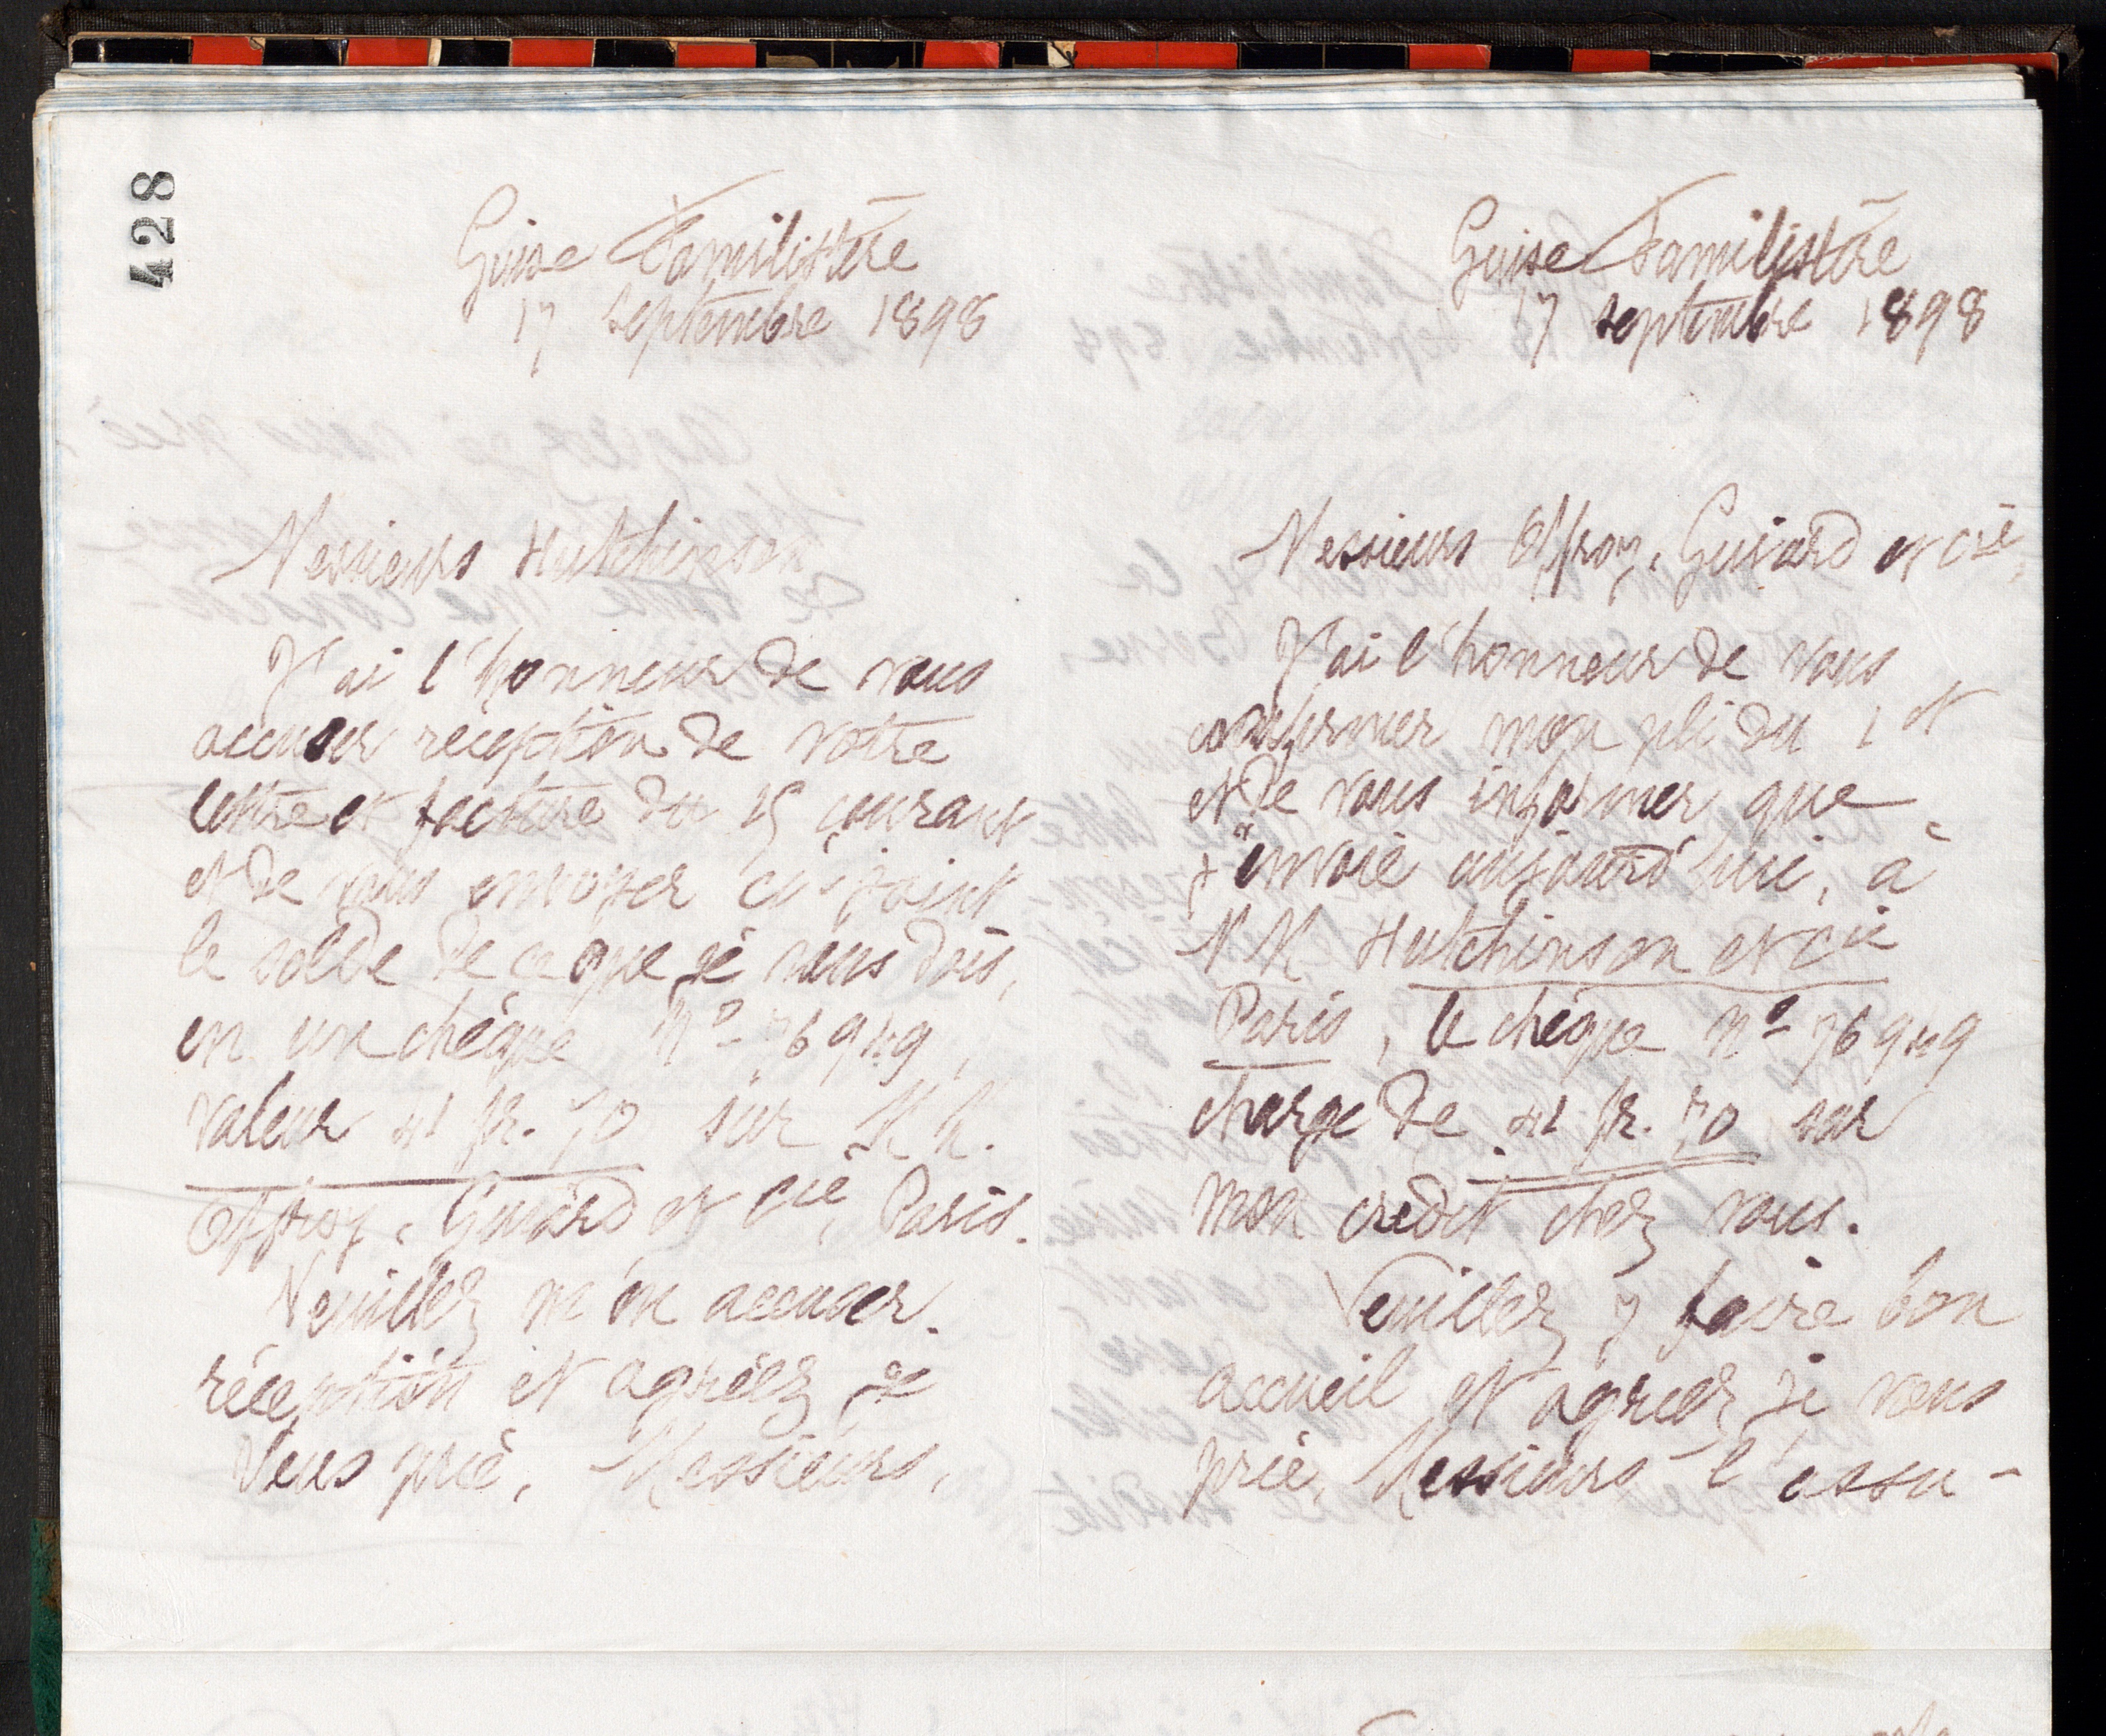 428
Guise Familistère
17 septembre 1898
Messieurs Hutchinson
J'ai l'honneur de vous
accuser réception de votre
lettre et facture du 15 courant
et de vous envoyer ci-joint
le solde de ce que je vous dois,
en un chèque Nº 76949,
valeur 41 fr. 70 sur MM.
Offroy, Guiard et Cie, Paris.
Veuillez m'en accuser
réception et agréez je
vous prie, Messieurs,
Guise Familistère
17 septembre 1898
Messieurs Offroy, Guiard et Cie,
J'ai l'honneur de vous
confirmer mon pli du 1er
et de vous informer que
j'envoie aujourd'hui, à
MM Hutchinson et Cie
Paris, le chèque nº 76949
charge de 41 fr. 70 sur
mon crédit chez vous.
Veuillez y faire bon
accueil et agréez je vous
prie, Messieurs l'assu-